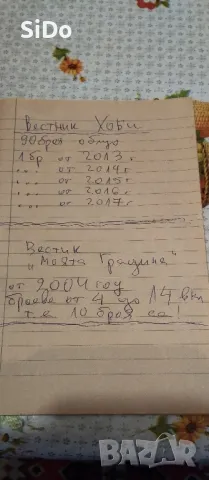 SiDo
Вестник Хоби
90 броя общо
1 бр от 2013 г
" .. от 2014 г
" .. от 2015 г
" .. от 2016 г
" .. от 2017 г
Вестик
"Моята Градина"
от 2004 год
броеве от 4 до 14 вкл
т.е 10 броя са!
BAZAR